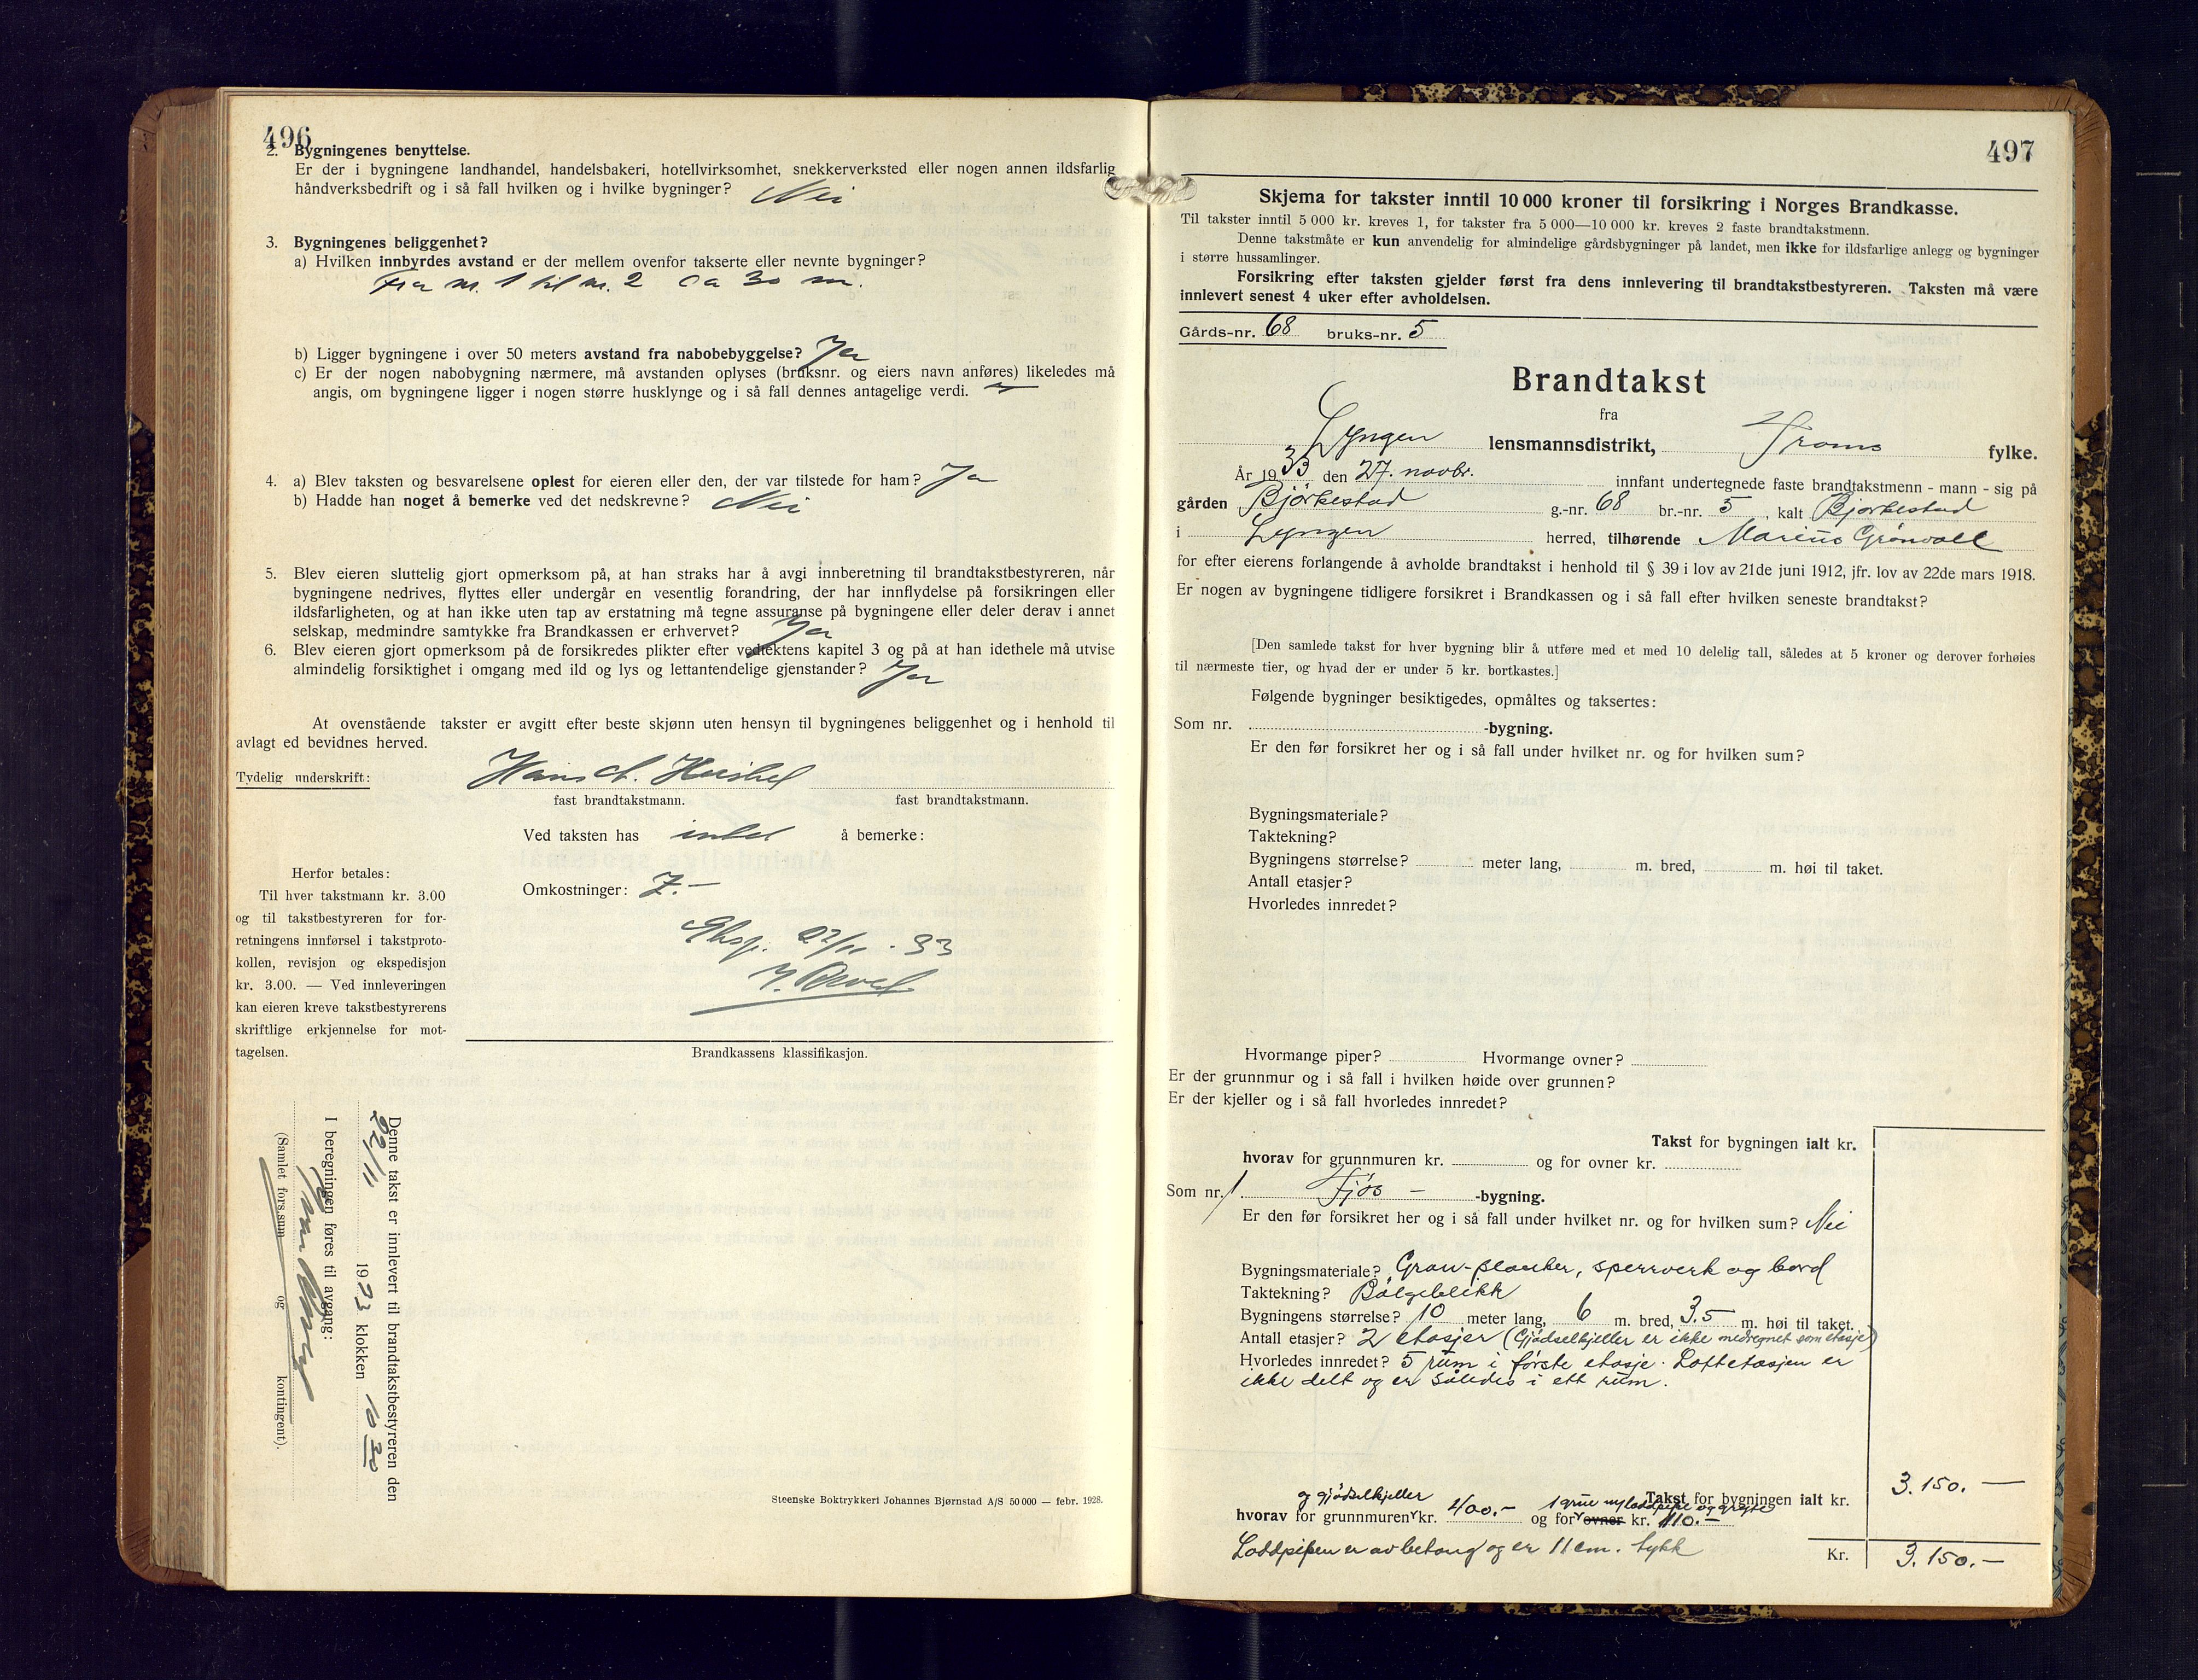 496
2. Bygningenes benyttelse.
Er der i bygningene landhandel, handelsbakeri, hotellvirksomhet, snekkerverksted eller nogen annen ildsfarlig
håndverksbedrift og i så fall hvilken og i hvilke bygninger? Nei
3. Bygningenes beliggenhet?
a) Hvilken innbyrdes avstand er der mellem ovenfor takserte eller nevnte bygninger?
Fra nr. 1 til nr. 2 ca 30 m.
b) Ligger bygningene i over 50 meters avstand fra nabobebyggelse? Ja
c) Er der nogen nabobygning nærmere, må avstanden oplyses (bruksnr. og eiers navn anføres) likeledes må
angis, om bygningene ligger i nogen større husklynge og i så fall dennes antagelige verdi.
4. a) Blev taksten og besvarelsene oplest for eieren eller den, der var tilstede for ham? Ja
b) Hadde han noget å bemerke ved det nedskrevne? Nei
5. Blev eieren sluttelig gjort opmerksom på, at han straks har å avgi innberetning til brandtakstbestyreren, når
bygningene nedrives, flyttes eller undergår en vesentlig forandring, der har innflydelse på forsikringen eller
ildsfarligheten, og at han ikke uten tap av erstatning må tegne assuranse på bygningene eller deler derav i annet
selskap, medmindre samtykke fra Brandkassen er erhvervet? Ja
6. Blev eieren gjort opmerksom på de forsikredes plikter efter vedtektens kapitel 3 og på at han idethele må utvise
almindelig forsiktighet i omgang med ild og lys og lettantendelige gjenstander? Ja
At ovenstående takster er avgitt efter beste skjønn uten hensyn til bygningenes beliggenhet og i henhold til
avlagt ed bevidnes herved.
Tydelig underskrift: Hans
fast brandtakstmann. fast brandtakstmann.
Ved taksten has intet å bemerke:
Omkostninger: 7.-
22/11 - 33
Herfor betales:
Til hver takstmann kr. 3.00
og til takstbestyreren for for-
retningens innførsel i takstproto-
kollen, revisjon og ekspedisjon
kr. 3.00. — Ved innleveringen
kan eieren kreve takstbestyrerens
skriftlige erkjennelse for mot-
tagelsen.
Brandkassens klassifikasjon.
Denne takst er innlevert til brandtakstbestyreren den
22/11 1933 klokken 10 30
I beregningen føres til avgang:
(Samlet fors.sum og kontingent).
Steenske Boktrykkeri Johannes Bjørnstad A/S 50 000 — febr. 1928.
497
Skjema for takster inntil 10 000 kroner til forsikring i Norges Brandkasse.
Til takster inntil 5 000 kr. kreves 1, for takster fra 5 000—10 000 kr. kreves 2 faste brandtakstmenn.
Denne takstmåte er kun anvendelig for almindelige gårdsbygninger på landet, men ikke for ildsfarlige anlegg og bygninger
i større hussamlinger.
Forsikring efter taksten gjelder først fra dens innlevering til brandtakstbestyreren. Taksten må være
innlevert senest 4 uker efter avholdelsen.
Gårds-nr. 68 bruks-nr. 5
Brandtakst
fra
Lyngen lensmannsdistrikt, Troms fylke.
År 1933 den 27. novbr. innfant undertegnede faste brandtakstmenn - mann - sig på
gården Bjørkestad g.-nr. 68 br.-nr. 5, kalt Bjørkestad
i Lyngen herred, tilhørende Marius Grønvoll
for efter eierens forlangende å avholde brandtakst i henhold til § 39 i lov av 21de juni 1912, jfr. lov av 22de mars 1918.
Er nogen av bygningene tidligere forsikret i Brandkassen og i så fall efter hvilken seneste brandtakst?
[Den samlede takst for hver bygning blir å utføre med et med 10 delelig tall, således at 5 kroner og derover forhøies
til nærmeste tier, og hvad der er under 5 kr. bortkastes.]
Følgende bygninger besiktigedes, opmåltes og taksertes:
Som nr. -bygning.
Er den før forsikret her og i så fall under hvilket nr. og for hvilken sum?
Bygningsmateriale?
Taktekning?
Bygningens størrelse? meter lang, m. bred, m. høi til taket.
Antall etasjer?
Hvorledes innredet?
Hvormange piper? Hvormange ovner?
Er der grunnmur og i så fall i hvilken høide over grunnen?
Er der kjeller og i så fall hvorledes innredet?
Takst for bygningen ialt kr.
hvorav for grunnmuren kr. og for ovner kr.
Som nr. 1 Fjøs - -bygning.
Er den før forsikret her og i så fall under hvilket nr. og for hvilken sum? Nei
Bygningsmateriale? Gran-planker, sperrverk og bord
Taktekning? Bølgeblikk
Bygningens størrelse? 10 meter lang, 6 m. bred, 3.5 m. høi til taket.
Antall etasjer? 2 etasjer (Gjødselkjeller er ikke medregnet som etasje)
Hvorledes innredet? 5 rum i første etasje. Loftetasjen er
ikke delt og er således i ett rum.
Takst for bygningen ialt kr. 3.150.—
og gjødselkjeller 1 grue m/loddpipe og gryte
hvorav for grunnmuren kr. 400.- og for ovner kr. 110.-
Loddpipen er av betong og er 11 cm. tykk
Kr. 3.150.-